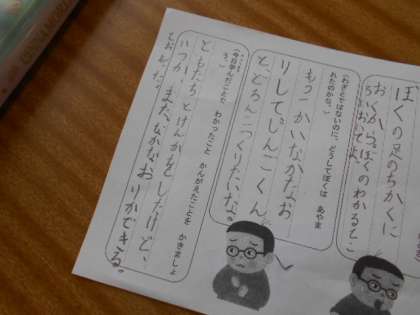 ぼくの足のちかくに
おくから。ぼくのわかるとこ
ろにおいてよ。
(わざとではないのに、どうしてぼくは　あやま
れたのかな。)
もう一かいなかなお
りして。しんごくん
と、どろんこつくりたいな。
(今日学んだことで　わかったこと　かんがえたことを　かきましょ
う。)
ともだちとけんかをしたけど、
いつか、また、なかなおりができる。
とおもった。